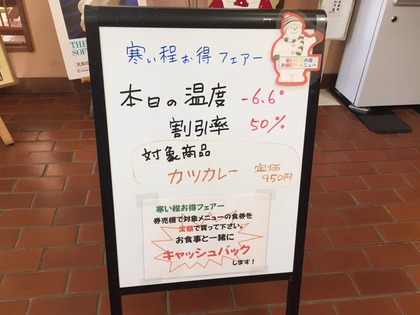 寒い程お得フェアー
本日の温度 -6.6°
割引率 50%
対象商品
カツカレー 定価 950円
寒い程お得フェアー
券売機で対象メニューの食券を
定額で買って下さい。
お食事と一緒に
キャッシュバック
します!
THE